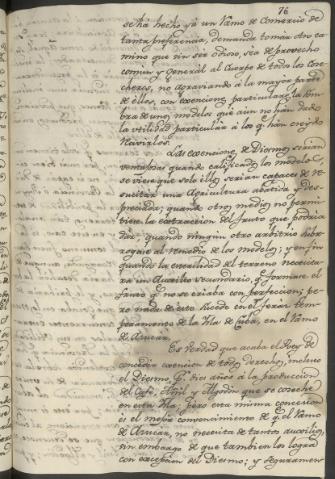 76
se há hecho yá un Ramo de Comercio de
tanta preferencia, demanda tomar otro ca
mino que sin ser odioso, sea de provecho
comun y General al Cuerpo de todos los Co
cheros, no agraviando á la mayor parte
de ellos, con exenciones particulares, la som
bra de unos modelos que aun no han dado
la utilidad particular á los qe han creido
hacerles.
Las exenciones de Diezmos serian
ventajosas quando calificados los modelos
se viera que solo ellos serian capaces de re
sucitar una Agricultura abatida y des
preciada; quando otros medios no permi
tiesen la extraccion del fruto que podria
dar; quando ningun otro arbitrio subro
gase al remedio de los modelos; y en fin
quando la esterilidad del terreno necesita
ra un Auxilio secundario, qe formase el
fruto qe no se criaba con perfeccion; pe
ro nada de esto sucede en el feraz tem
peramento de la Isla de Cuba, en el Ramo
de Azucar.
Es verdad que acaba el Rey de
conceder exencion de todos derechos, incluso
el Diezmo pr diez años á la produccion
del Café, Añil y Algodon que se coseche
en esta Isla; pero esta misma concesion
es el mejor convencimiento de qe el Ramo
de Azucar, no necesita de tantos auxilios,
sin embargo de que tambien los logra
con excepcion del Diezmo; y seguramen